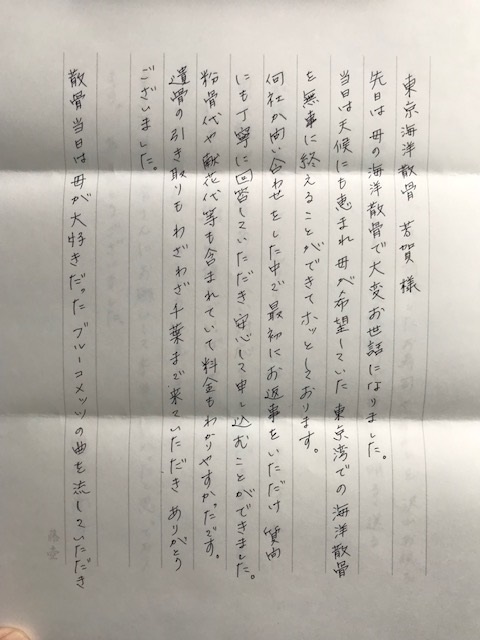 東京海洋散骨 芳賀様
先日は母の海洋散骨で大変お世話になりました。
当日は天候にも恵まれ母が希望していた東京湾での海洋散骨
を無事に終えることができてホッとしております。
何社か問い合わせをした中で最初にお返事をいただけ 質問
にも丁寧に回答していただき安心して申し込むことができました。
粉骨代や献花代等も含まれていて料金もわかりやすかったです。
遺骨の引き取りもわざわざ千葉まで来ていただき ありがとう
ございました。
散骨当日は母が大好きだったブルーコメッツの曲を流していただき